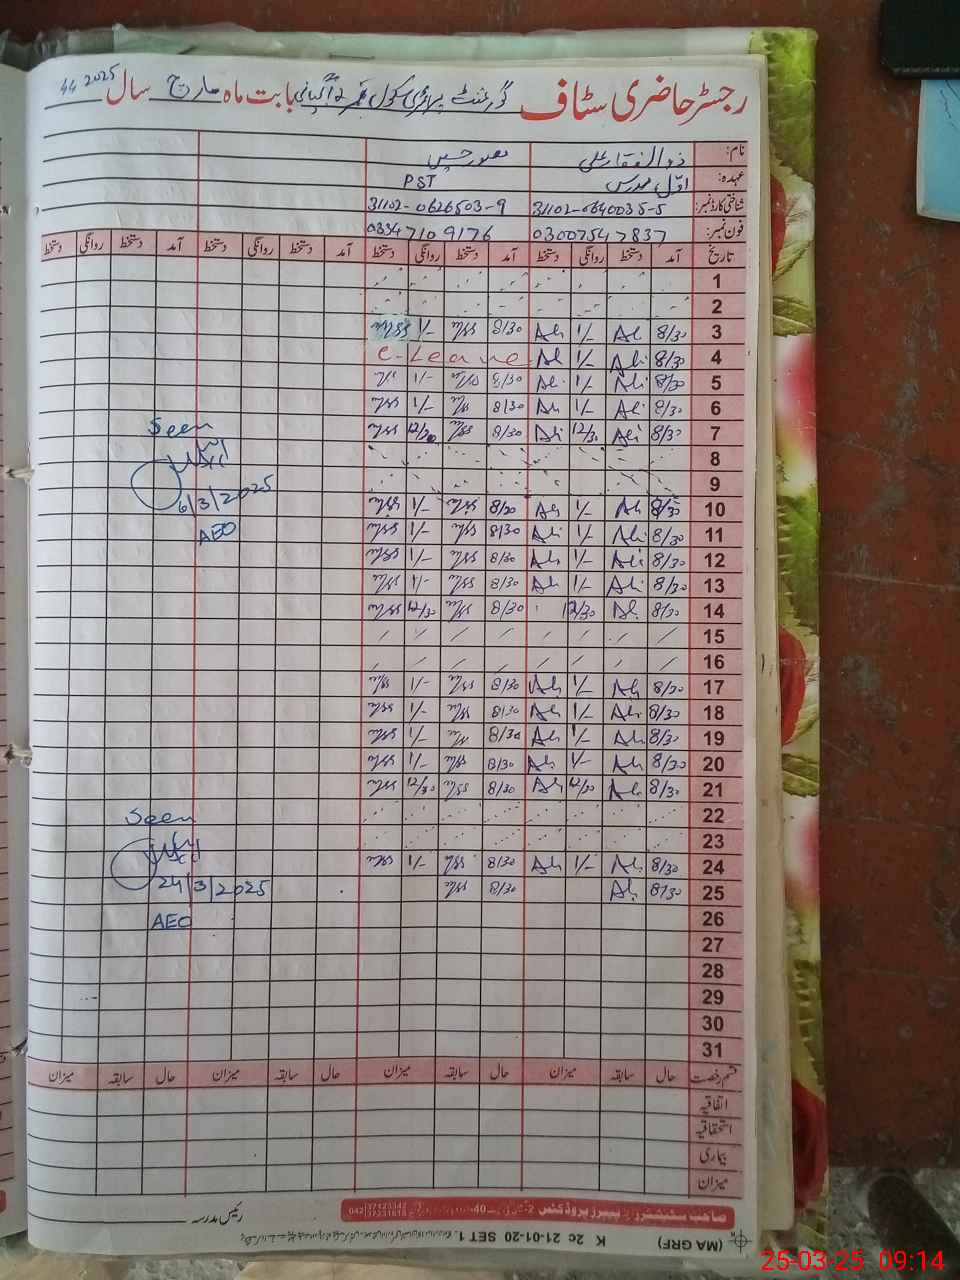 رجسٹر حاضری سٹاف گورنمنٹ پرائمری سکول نمبر 2 بابت ماہ مارچ سال 2025
نام: ذوالفقار علی منصور حسین
عہدہ: اول مدرس PST
شناختی کارڈ نمبر: 31102-0640035-5 31102-0626503-9
فون نمبر: 03007547837 03347109176
تاریخ آمد دستخط روانگی دستخط آمد دستخط روانگی دستخط آمد دستخط روانگی دستخط آمد دستخط روانگی
1
2
3 8/30 Ali 1/- Ali 8/30 1/-
4 8/30 Ali 1/- Ali C-Leave
5 8/30 Ali 1/- Ali 8/30 1/-
6 8/30 Ali 1/- Ali 8/30 1/-
7 8/30 Ali 12/30 Ali 8/30 12/30
Seen
8
9
6/3/2025
10 8/30 Ali 1/- Ali 8/30 1/-
AEO
11 8/30 Ali 1/- Ali 8/30 1/-
12 8/30 Ali 1/- Ali 8/30 1/-
13 8/30 Ali 1/- Ali 8/30 1/-
14 8/30 Ali 12/30 8/30 12/30
15
16
17 8/30 Ali 1/- Ali 8/30 1/-
18 8/30 Ali 1/- Ali 8/30 1/-
19 8/30 Ali 1/- Ali 8/30 1/-
20 8/30 Ali 1/- Ali 8/30 1/-
21 8/30 Ali 12/30 Ali 8/30 12/30
22
Seen
23
24 8/30 Ali 1/- Ali 8/30 1/-
25 8/30 Ali 8/30
24/3/2025
26
AEO
27
28
29
30
31
قسم رخصت حال سابقہ میزان حال سابقہ میزان حال سابقہ میزان حال سابقہ میزان
اتفاقیہ
استحقاقیہ
بیماری
میزان
صاحب سٹیشنرز پیپرز پروڈکٹس
رئیس مدرسہ
(MA GRF) K 2c 21-01-20 SET 1
25-03-25 09:14